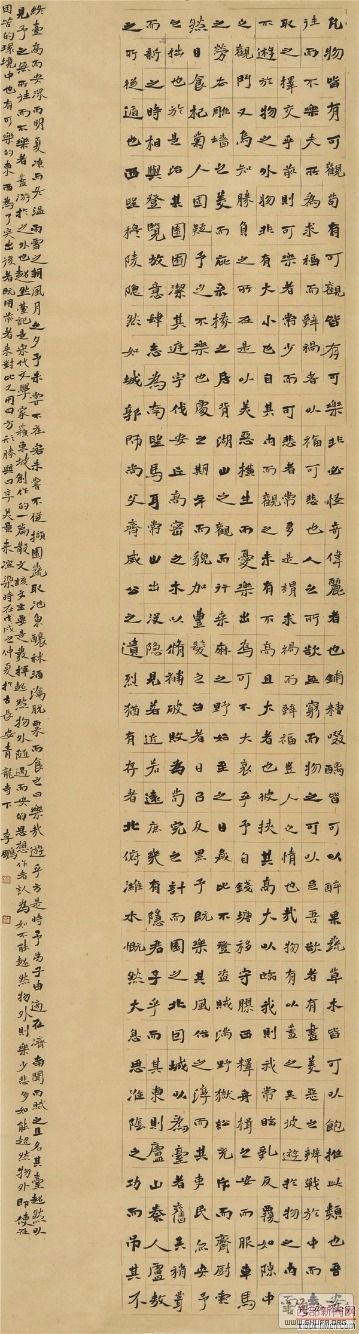 凡物皆有可觀苟有可觀皆有可樂非必怪奇偉麗者也餔糟啜醨皆可以醉果蔬草木皆可以飽推此類也吾安
往而不樂夫所為求福而辭禍者以福可悲也人之所欲無窮而物之可以足吾欲者有盡美惡之辨戰於中而去
取之擇交乎前則可樂者常少而可悲者常多是謂求禍而辭福豈人之情也哉物有以蓋之矣彼遊於物之內而
不遊於物之外物非有大小也自其內而觀之未有不高且大者也彼挾其高大以臨我則我常眩亂反覆如隙中
之觀鬥又焉知勝負之所在是以美惡橫生而憂樂出焉可不大哀乎予自錢塘移守膠西釋舟楫之安而服車馬
之勞去雕牆之美而庇采椽之居背湖山之觀而行桑麻之野始至之日歲比不登盜賊滿野獄訟充斥而齋廚索
然日食杞菊人固疑予之不樂也處之期年而貌加豐髮之白者日以反黑予既樂其風俗之淳而其吏民亦安予
之拙也於是治其園囿潔其庭宇伐安丘高密之木以修補破敗為苟完之計而園之北因城以為臺者舊矣稍葺
而新之時相與登覽放意肆志焉南望馬耳常山出沒隱見若近若遠庶幾有隱君子乎而其東則廬山秦人盧敖
之所從遁也西望穆陵隱然如城郭師尚父齊威公之遺烈猶有存者北俯濰水慨然大息思淮陰之功而弔其不
終臺高而安深而明夏涼而冬溫雨雪之朝風月之夕予未嘗不在客未嘗不從擷園蔬取池魚釀秫酒瀹脫粟而食之曰樂哉遊乎方是時予弟子由適在濟南聞而賦之且名其臺超然以
見予之無所往而不樂者蓋游於物之外也超然臺記是宋代文學家蘇東坡創作的一篇散文該文主要是發揮超然物外隨遇而安的思想作者認為如不能超然物外則樂少悲多如能超然物外即使在
困苦的環境中也有可樂的東西為了突出後者既用前者來對比又用四方形勝與四季美景來渲染時在戊戌之仲夏於古長安青龍寺下 李鵬